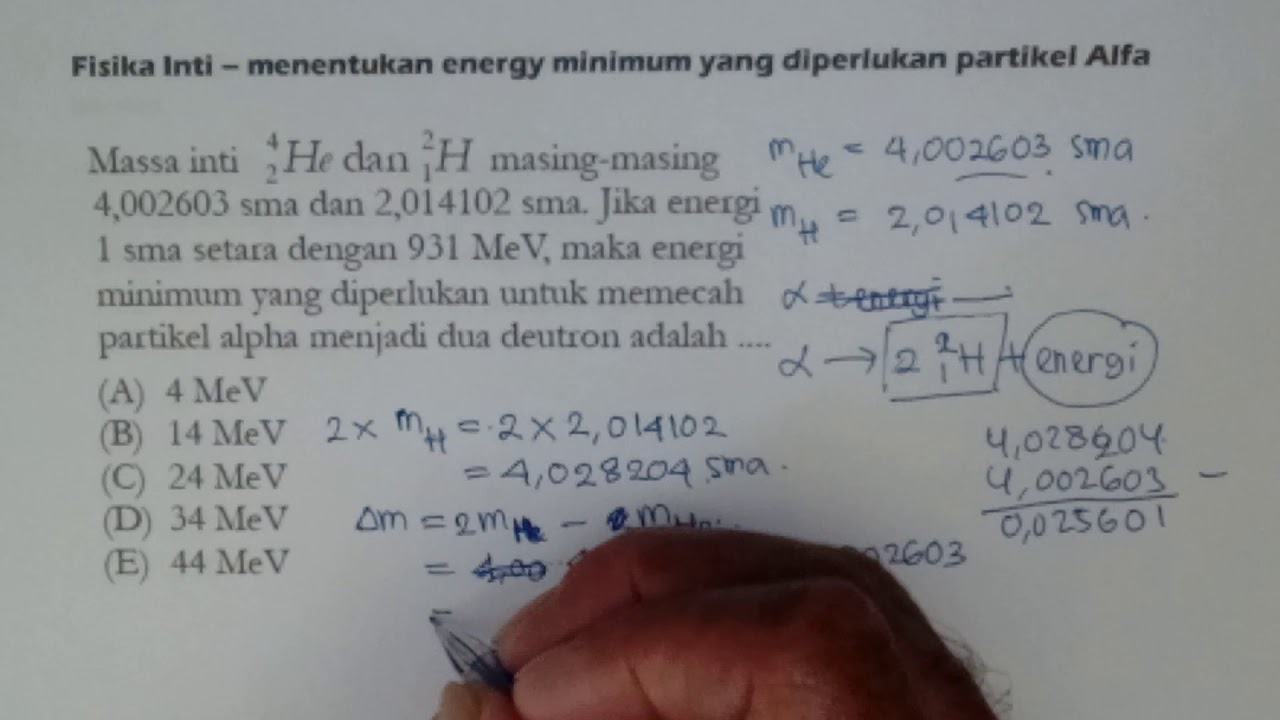 Fisika Inti – menentukan energy minimum yang diperlukan partikel Alfa
Massa inti ⁴₂He dan ²₁H masing-masing
4,002603 sma dan 2,014102 sma. Jika energi
1 sma setara dengan 931 MeV, maka energi
minimum yang diperlukan untuk memecah
partikel alpha menjadi dua deutron adalah ....
(A) 4 MeV
(B) 14 MeV
(C) 24 MeV
(D) 34 MeV
(E) 44 MeV
m_He = 4,002603 sma
m_H = 2,014102 sma.
α + energi
α → 2 ²₁H + energi
2 x m_H = 2 x 2,014102
= 4,028204 sma.
Δm = 2m_H – m
= 4,00 02603
=
4,028204
4,002603 –
0,025601